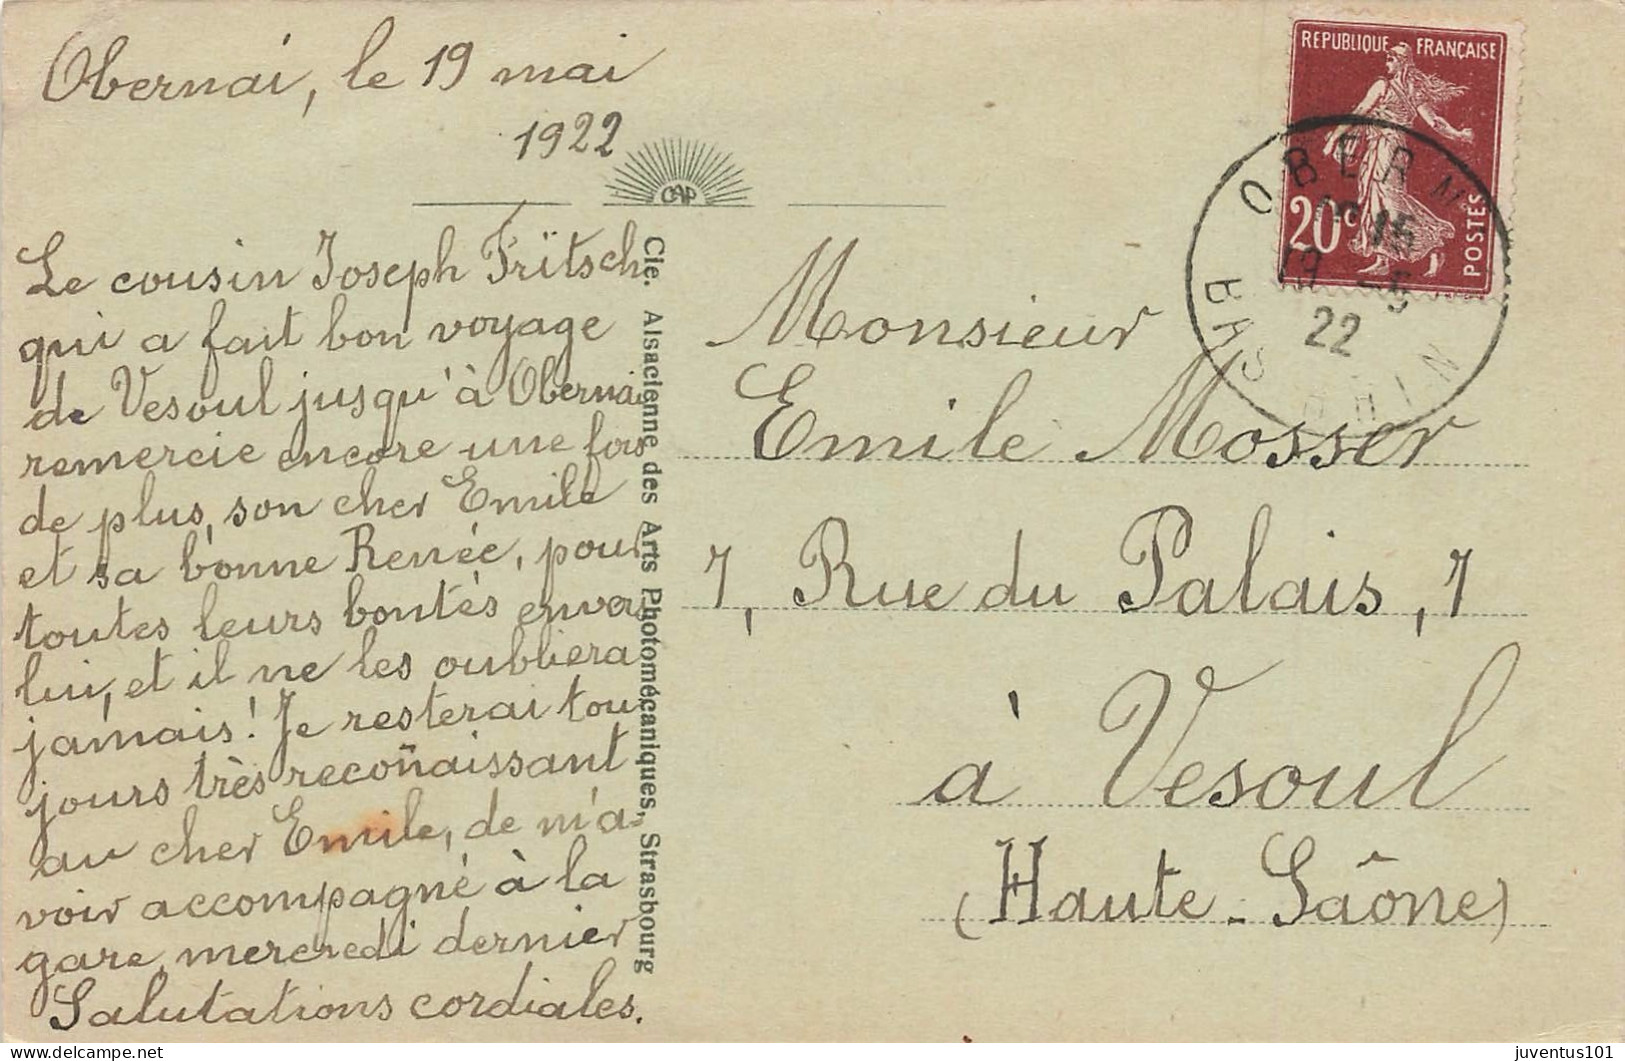 Obernai, le 19 mai
1922
CAP
Le cousin Joseph Fritsch
qui a fait bon voyage
de Vesoul jusqu'à Obernai
remercie encore une fois
de plus, son cher Emile
et sa bonne Renée, pour
toutes leurs bontés envers
lui, et il ne les oubliera
jamais! Je resterai tou
jours très reconñaissant
au cher Emile, de m'a-
voir accompagné à la
gare, mercredi dernier
Salutations cordiales.
Cie. Alsacienne des Arts Photomécaniques, Strasbourg
REPUBLIQUE FRANÇAISE
20c
POSTES
OBERN
15
19 -5
22
BAS RHIN
Monsieur
Emile Mosser
7, Rue du Palais, 7
à Vesoul
(Haute-Saône)
juventus101